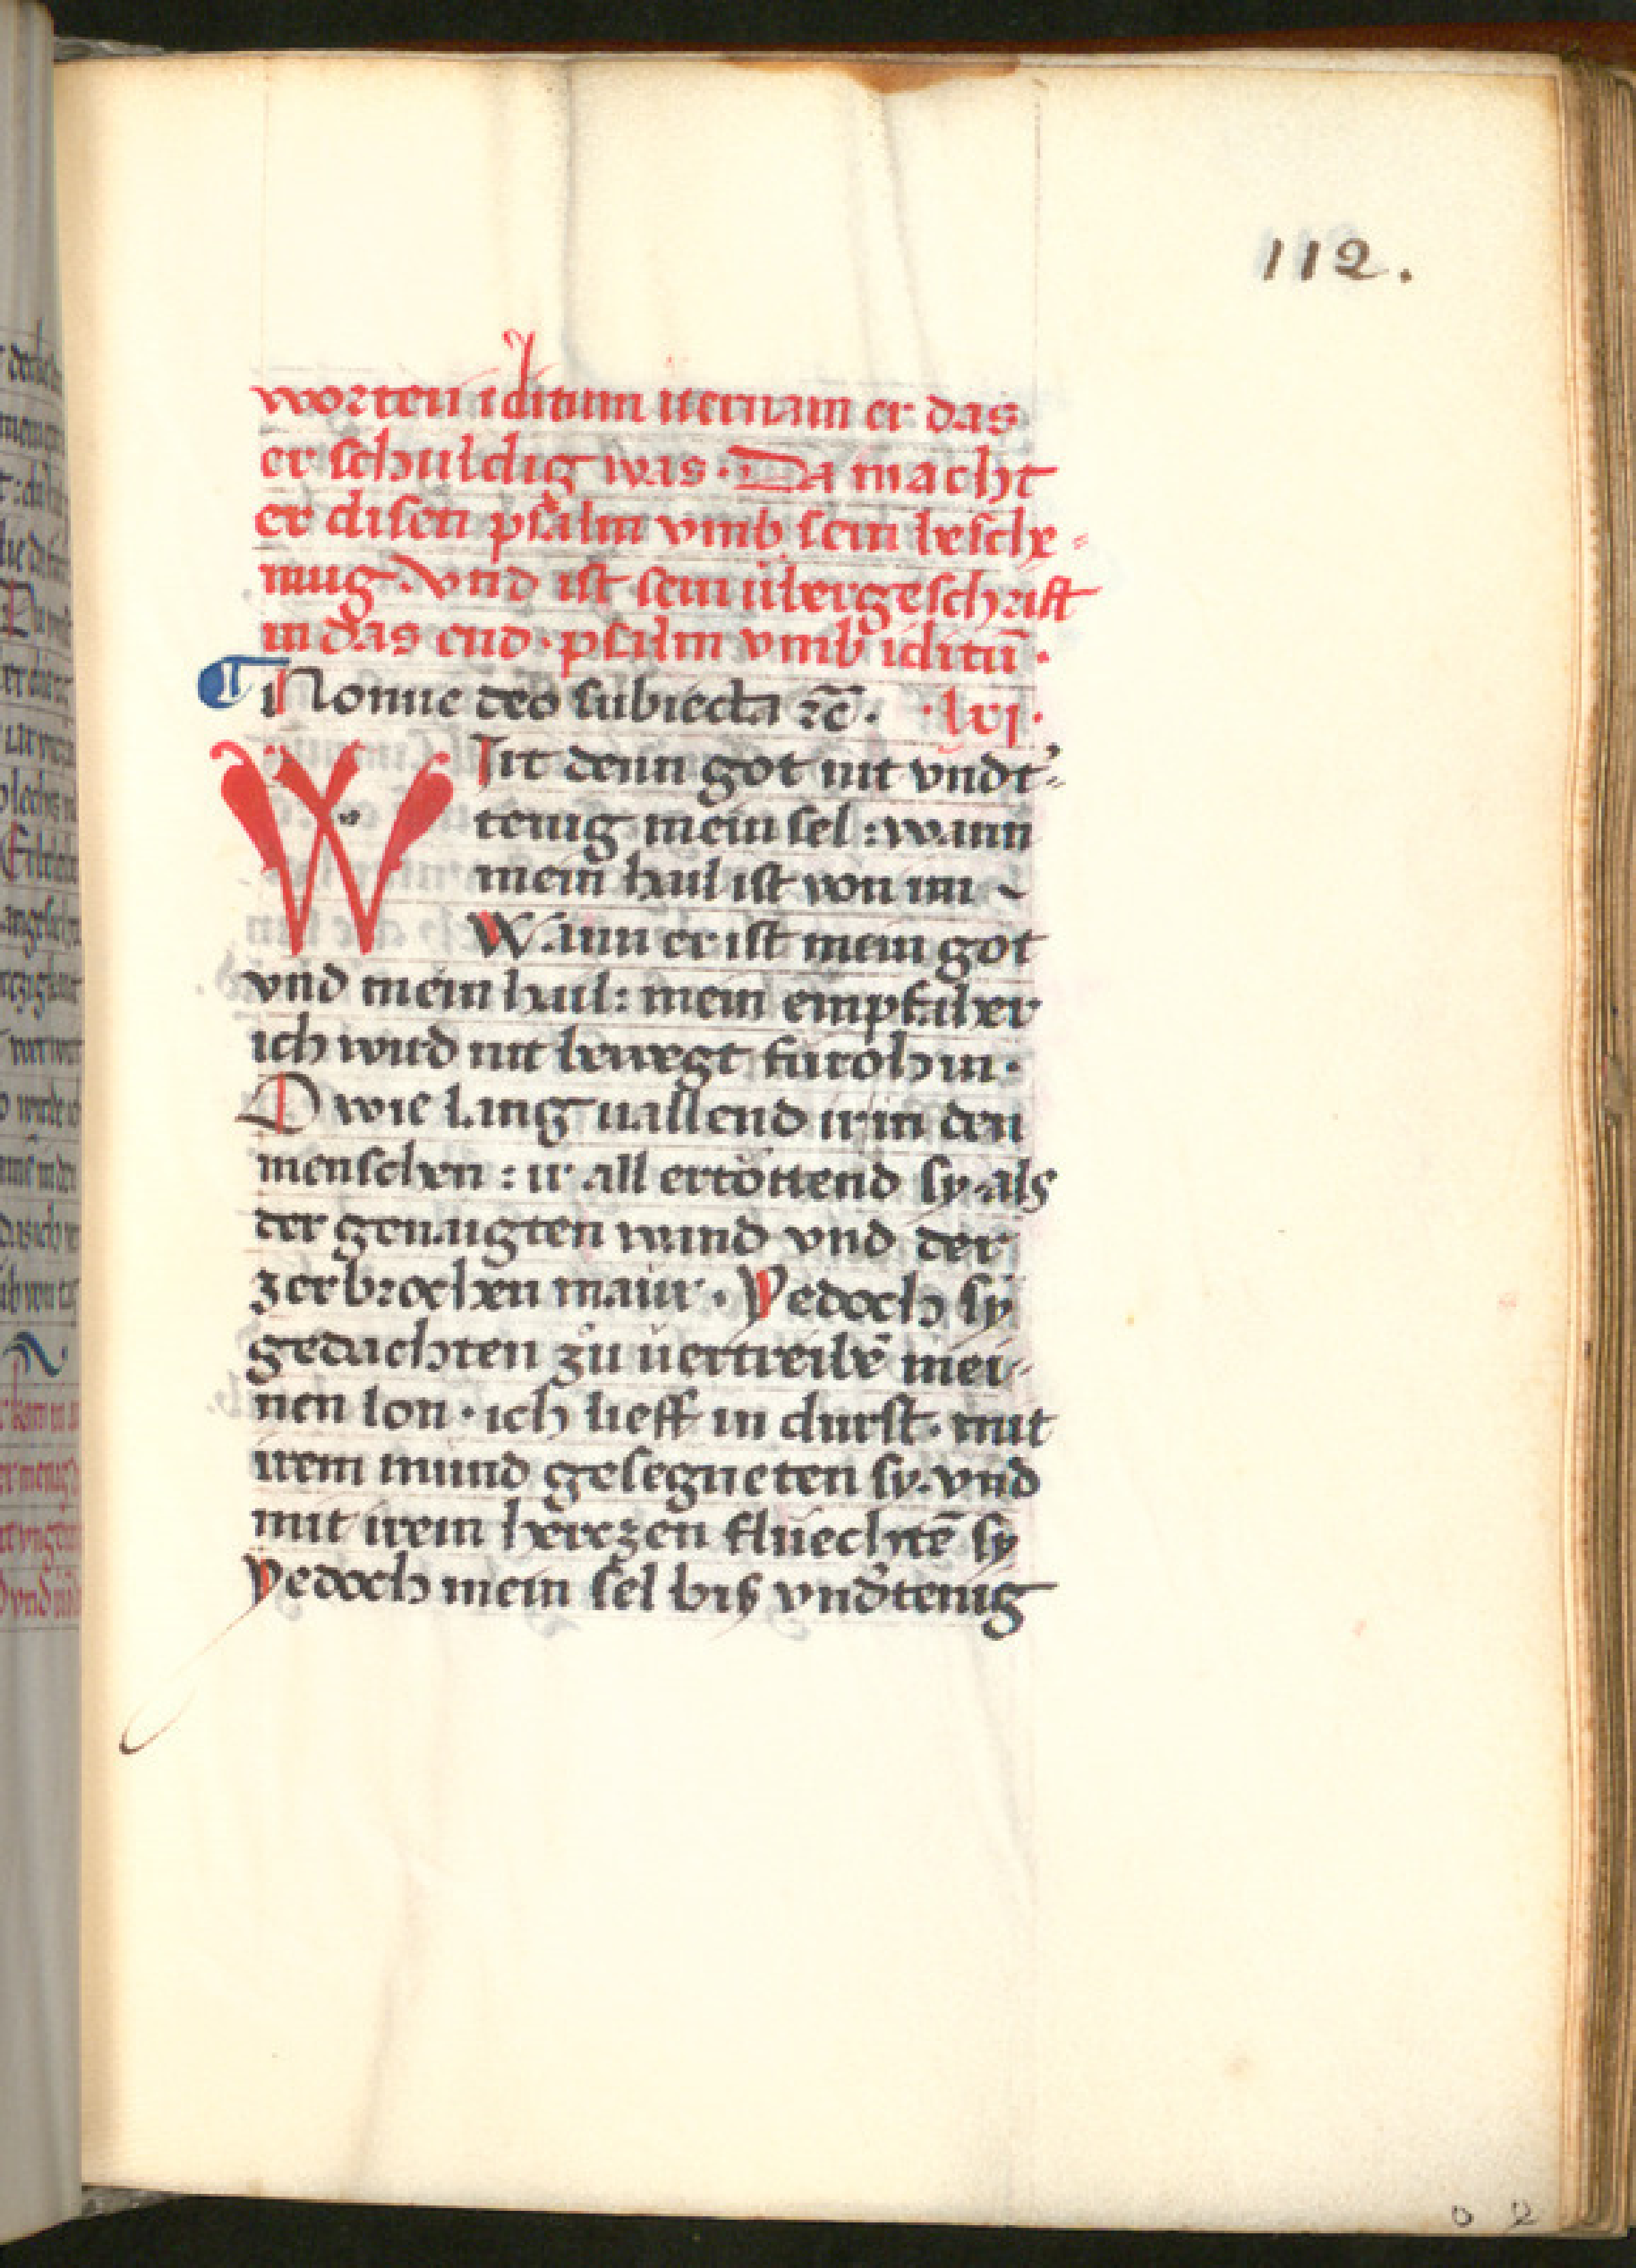 112.
worten iditum uernam er das
er schuldig was · Da macht
er disen psalm vmb sein besche⸗
mug · vnd ist sein übergeschrift
in das end · psalm vmb iditū ·
Nonne deo subiecta ⁊c̄ . · lxi ·
WIrt denn got nit vndt'⸗
tenig mein sel : wann
mein hail ist von im
Wann er ist mein got
vnd mein hail : mein empfaher
ich wird nit bewegt fürohin ·
O wie lang uallend ir in den
menschen : ir all ertöttend sy · als
der genaigten wand vnd der
zerbrochen maur · Yedoch sy
gedachten zů uertreibē mei⸗
nen lon · ich lieff in durst · mit
irem mund gesegneten sy · vnd
mit irem herczen fluechtē sy
Yedoch mein sel bis vnd'tenig
o 2